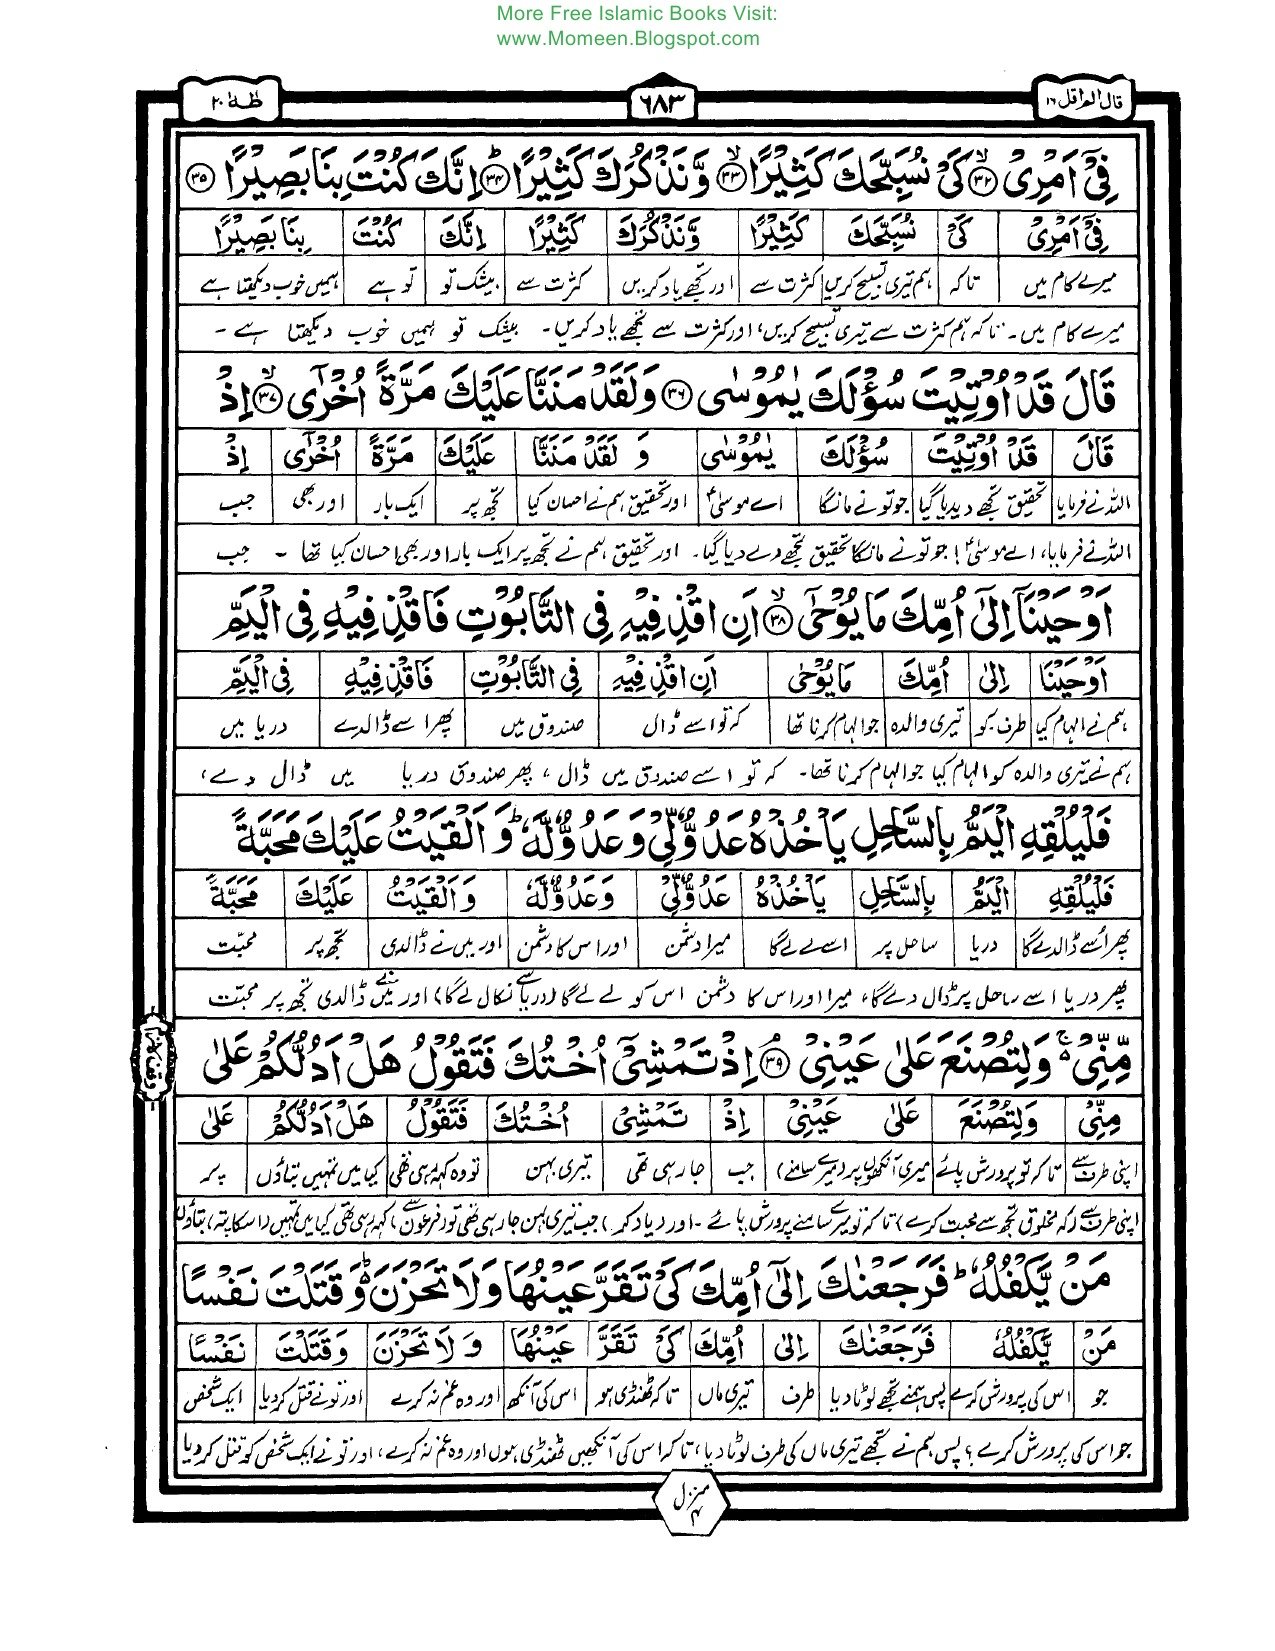 More Free Islamic Books Visit:
www.Momeen.Blogspot.com
قال الم اقل ١٦
٦٨٣
طٰهٰ ٢٠
فِیْۤ اَمْرِیْ ۙ۳۲ كَیْ نُسَبِّحَكَ كَثِیْرًا ۙ۳۳ وَّنَذْكُرَكَ كَثِیْرًا ؕ۳۴ اِنَّكَ كُنْتَ بِنَا بَصِیْرًا ۳۵
فِیْۤ اَمْرِیْ كَیْ نُسَبِّحَكَ كَثِیْرًا وَّنَذْكُرَكَ كَثِیْرًا اِنَّكَ كُنْتَ بِنَا بَصِیْرًا
میرے کام میں تاکہ ہم تیری تسبیح کریں کثرت سے اور تجھے یاد کریں کثرت سے بیشک تو تو ہے ہمیں خوب دیکھتا ہے
میرے کام میں۔ تاکہ ہم کثرت سے تیری تسبیح کریں، اور کثرت سے تجھے یاد کریں۔ بیشک تو ہمیں خوب دیکھتا ہے ۔
قَالَ قَدْ اُوْتِیْتَ سُؤْلَكَ یٰمُوْسٰی ۳۶ وَلَقَدْ مَنَنَّا عَلَیْكَ مَرَّةً اُخْرٰۤی ۙ۳۷ اِذْ
قَالَ قَدْ اُوْتِیْتَ سُؤْلَكَ یٰمُوْسٰی وَ لَقَدْ مَنَنَّا عَلَیْكَ مَرَّةً اُخْرٰۤی اِذْ
اللہ نے فرمایا تحقیق تجھے دیدیا گیا جو تو نے مانگا اے موسیٰؑ اور تحقیق ہم نے احسان کیا تجھ پر ایک بار اور بھی جب
اللہ نے فرمایا، اے موسیٰؑ! جو تو نے مانگا تحقیق تجھے دے دیا گیا۔ اور تحقیق ہم نے تجھ پر ایک بار اور بھی احسان کیا تھا ۔ جب
اَوْحَیْنَاۤ اِلٰۤی اُمِّكَ مَا یُوْحٰۤی ۙ۳۸ اَنِ اقْذِفِیْهِ فِی التَّابُوْتِ فَاقْذِفِیْهِ فِی الْیَمِّ
اَوْحَیْنَا اِلٰۤی اُمِّكَ مَا یُوْحٰی اَنِ اقْذِفِیْهِ فِی التَّابُوْتِ فَاقْذِفِیْهِ فِی الْیَمِّ
ہم نے الہام کیا طرف۔کو تیری والدہ جو الہام کرنا تھا کہ تو اسے ڈال صندوق میں پھر اسے ڈالدے دریا میں
ہم نے تیری والدہ کو الہام کیا جو الہام کرنا تھا۔ کہ تو اسے صندوق میں ڈال ، پھر صندوق دریا میں ڈال دے،
فَلْیُلْقِهِ الْیَمُّ بِالسَّاحِلِ یَاْخُذْهُ عَدُوٌّ لِّیْ وَعَدُوٌّ لَّهٗ ؕ وَاَلْقَیْتُ عَلَیْكَ مَحَبَّةً
فَلْیُلْقِهِ الْیَمُّ بِالسَّاحِلِ یَاْخُذْهُ عَدُوٌّ لِّیْ وَعَدُوٌّ لَّهٗ وَاَلْقَیْتُ عَلَیْكَ مَحَبَّةً
پھر اُسے ڈالدے گا دریا ساحل پر اسے لے گا میرا دشمن اور اس کا دشمن اور میں نے ڈالدی تجھ پر محبت
پھر دریا اسے ساحل پر ڈال دے گا، میرا اور اس کا دشمن اس کو لے لے گا (دریا سے نکال لے گا) اور میں نے ڈالدی تجھ پر محبت
مِّنِّیْ ۚ۬ وَلِتُصْنَعَ عَلٰی عَیْنِیْ ۘ۳۹ اِذْ تَمْشِیْۤ اُخْتُكَ فَتَقُوْلُ هَلْ اَدُلُّكُمْ عَلٰی
مِنِّیْ وَلِتُصْنَعَ عَلٰی عَیْنِیْ اِذْ تَمْشِیْۤ اُخْتُكَ فَتَقُوْلُ هَلْ اَدُلُّكُمْ عَلٰی
اپنی طرف سے تاکہ تو پرورش پائے میری آنکھوں پر (میرے سامنے) جب جا رہی تھی تیری بہن تو وہ کہہ رہی تھی کیا میں تمہیں بتاؤں پر
اپنی طرف سے (کہ مخلوق تجھ سے محبت کرے) تاکہ تو میرے سامنے پرورش پائے ۔ اور (یاد کر) جب تیری بہن جا رہی تھی تو (فرعون سے) کہہ رہی تھی کیا میں تمہیں (اسکا پتہ) بتاؤں
مَنْ یَّكْفُلُهٗ ؕ فَرَجَعْنٰكَ اِلٰۤی اُمِّكَ كَیْ تَقَرَّ عَیْنُهَا وَلَا تَحْزَنَ ؕ۬ وَقَتَلْتَ نَفْسًا
مَنْ یَّكْفُلُهٗ فَرَجَعْنٰكَ اِلٰۤی اُمِّكَ كَیْ تَقَرَّ عَیْنُهَا وَ لَا تَحْزَنَ وَقَتَلْتَ نَفْسًا
جو اس کی پرورش کرے پس ہمنے تجھے لوٹا دیا طرف تیری ماں تاکہ ٹھنڈی ہو اس کی آنکھ اور وہ غم نہ کرے اور تو نے قتل کر دیا ایک شخص
جو اس کی پرورش کرے؟ پس ہم نے تجھے تیری ماں کی طرف لوٹا دیا، تاکہ اس کی آنکھیں ٹھنڈی ہوں اور وہ غم نہ کرے، اور تو نے ایک شخص کو قتل کر دیا
منزل ۴